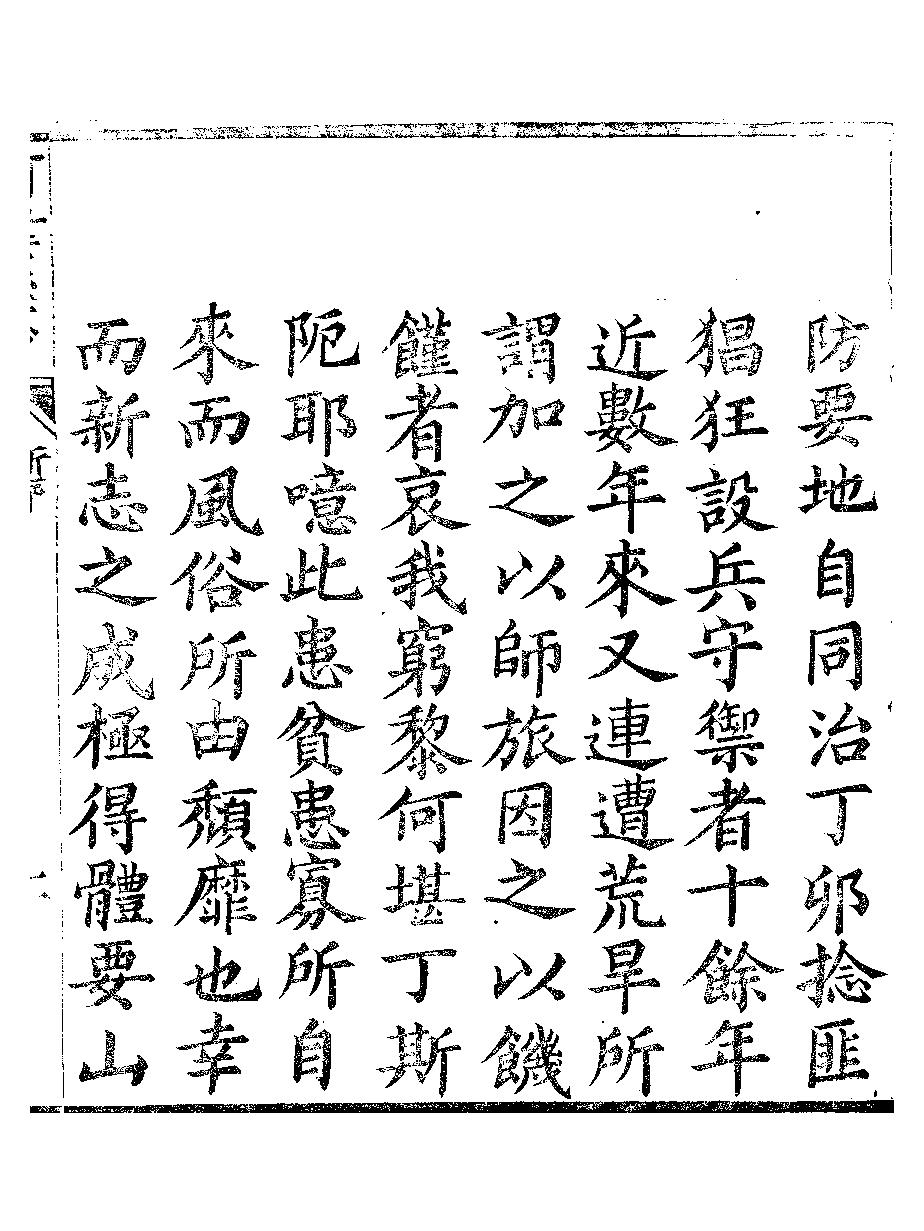 防要地自同治丁卯捻匪
猖狂設兵守禦者十餘年
近數年來又連遭荒旱所
謂加之以師旅因之以饑
饉者哀我窮黎何堪丁斯
阨耶噫此患貧患寡所自
來而風俗所由頽靡也幸
而新志之成極得體要山